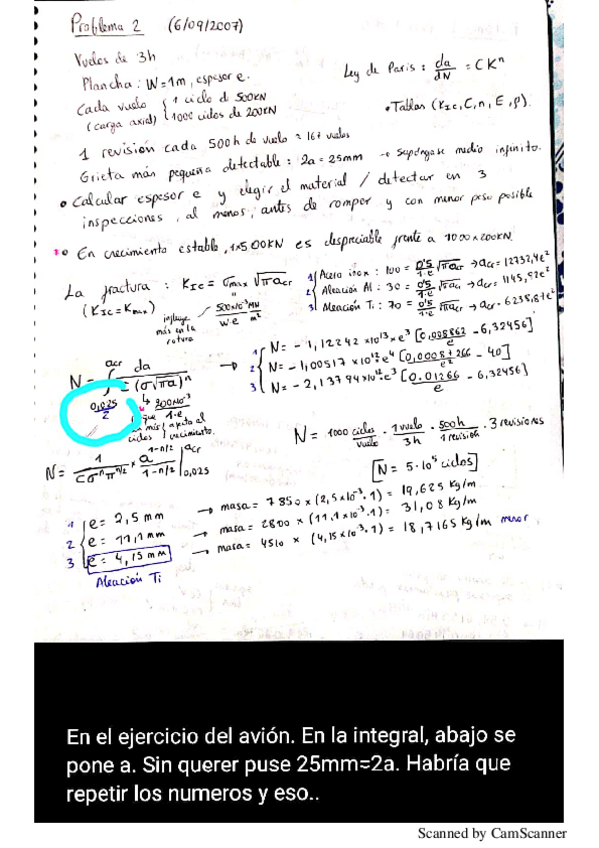 Problema 2 (6/09/2007)
Vuelos de 3h
Plancha: W=1m, espesor e.
Ley de Paris: da/dN = CKⁿ
Cada vuelo { 1 ciclo d 500KN
(carga axial) { 1000 ciclos de 200KN
• Tablas (KIC, C, n, E, ρ).
1 revisión cada 500h de vuelo ≈ 167 vuelos
Grieta más pequeña detectable: 2a = 25mm → Supóngase medio infinito.
• Calcular espesor e y elegir el material / detectar en 3
inspecciones, al menos, antes de romper y con menor peso posible
• En crecimiento estable, 1x500KN es despreciable frente a 1000x200KN.
La fractura: KIC = σmax √πacr
(KIC = Kmax)
influye más en la rotura
500x10⁻³ MN / w·e m²
1 Acero inox: 100 = 0'5/1·e √πacr → acr = 12732,4e²
2 Aleación Al: 30 = 0'5/1·e √πacr → acr = 1145,92e²
3 Aleación Ti: 70 = 0'5/1·e √πacr → acr = 6238,87e²
N = ∫ acr 0,025/2 da / C(σ√πa)ⁿ
200x10⁻³ / 1·e
1 N = -1,12242 x10¹³ x e³ [0,008862/e - 6,32456]
2 N = -1,00517 x10¹² e⁴ [0,0008+266/e² - 40]
3 N = -2,13794x10¹² e³ [0.01266/e - 6,32456]
N = 1000 ciclos/vuelo · 1 vuelo/3h · 500h/1 revisión · 3 revisiones
N = 1/Cσⁿπⁿ/² x a¹⁻ⁿ/²/1-n/2 | acr 0,025
[N = 5·10⁵ ciclos]
1 e = 2,5 mm → masa = 7850 x (2,5x10⁻³·1) = 19,625 Kg/m
2 e = 11,1 mm → masa = 2800 x (11,1x10⁻³·1) = 31,08 Kg/m
3 e = 4,15 mm → masa = 4510 x (4,15x10⁻³·1) = 18,7165 Kg/m menor
Aleación Ti
En el ejercicio del avión. En la integral, abajo se
pone a. Sin querer puse 25mm=2a. Habría que
repetir los numeros y eso..
Scanned by CamScanner